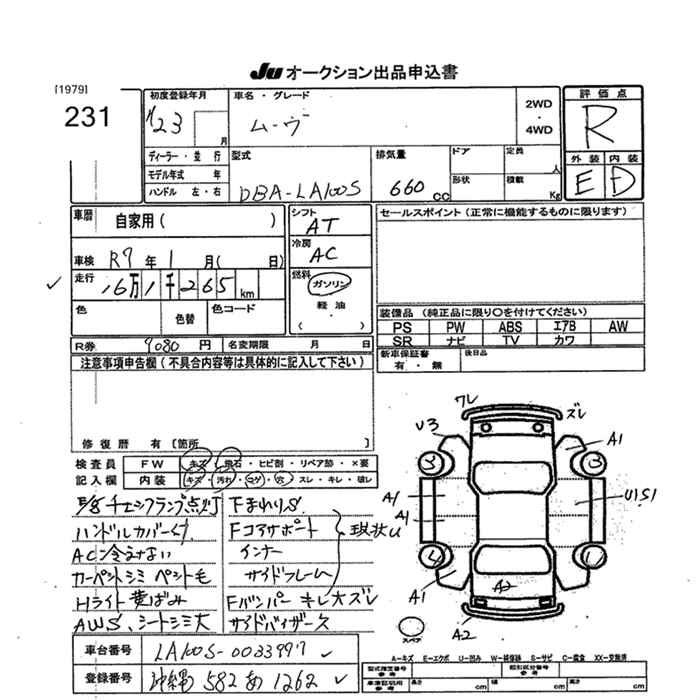 Ju オークション出品申込書
[1979]
231
初度登録年月
H23 月
車名・グレード
ムーヴ
2WD
・
4WD
評価点
R
外装 内装
E D
ディーラー・並行
モデル年式 年
ハンドル 左・右
型式
DBA-LA100S
排気量
660 cc
ドア
定員 人
形状
積載 Kg
車歴 自家用( )
車検 R7年 1月( 日)
走行 16万1千265 km
色 色替 色コード
シフト
AT
冷房
AC
燃料
ガソリン
軽油
( )
セールスポイント(正常に機能するものに限ります)
装備品(純正品に限り○を付けてください)
PS PW ABS エアB AW
SR ナビ TV カワ
新車保証書 後日品
有・無
R券 9080円 名変期限 月 日
注意事項申告欄(不具合内容等は具体的に記入して下さい)
修復歴 有 [箇所 ]
検査員 FW キズ・飛石・ヒビ割・リペア跡・×要
記入欄 内装 キズ・汚れ・コゲ・穴・スレ・キレ・破レ
チェックランプ点灯 下まわりS
ハンドルカバー Fコアサポート 現状
AC冷えない インナー
カーペットシミ ペット毛 サイドフレーム
Hライト黄ばみ Fバンパー キレ大ズレ
AWS、シートシミ大 サイドバイザーズ
ワレ
ズレ
U3
A1
3
3
A1
U1S1
A1
4
4
A1
A2
A1
スペア
A2
車台番号 LA100S-0033997
登録番号 沖縄 582 あ 1262
A-キズ E-エクボ U-凹み W-補修跡 S-サビ C-腐食 XX-交換済
型式指定番号 参考 類別区分番号 参考
車庫証明用 参考 長さ cm 幅 cm 高さ cm